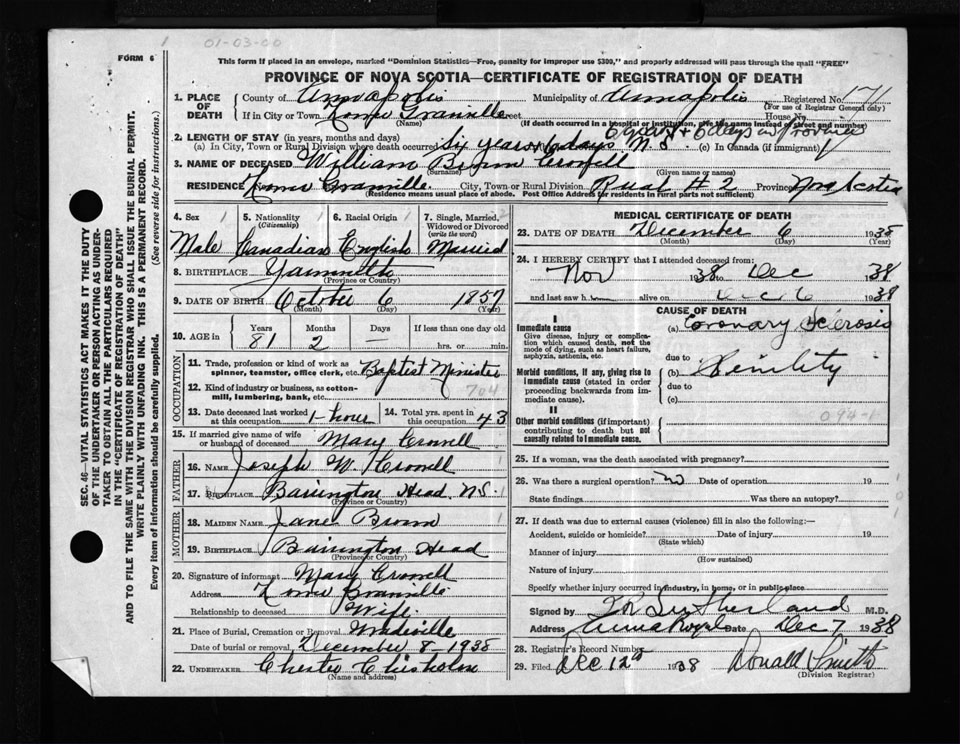 01-03-00
FORM 6
This form if placed in an envelope, marked "Dominion Statistics—Free, penalty for improper use $300," and properly addressed will pass through the mail "FREE"
PROVINCE OF NOVA SCOTIA—CERTIFICATE OF REGISTRATION OF DEATH
1. PLACE OF DEATH
County of Annapolis Municipality of Annapolis Registered No. 171
(For use of Registrar General only)
If in City or Town Lower Granville Street House No.
(Name) (If death occurred in a hospital or institution, give the name instead of street and number)
2. LENGTH OF STAY (in years, months and days) 6 years & 6 days in Province
(a) In City, Town or Rural Division where death occurred Six years & 6 days N.S. (c) In Canada (if immigrant)
3. NAME OF DECEASED William Brown Crowell
(Surname) (Given name or names)
RESIDENCE Lower Granville City, Town or Rural Division Rural #2 Province Nova Scotia
(Residence means usual place of abode. Post Office Address for residents in rural parts not sufficient)
4. Sex Male
5. Nationality (Citizenship) Canadian
6. Racial Origin English
7. Single, Married, Widowed or Divorced (write the word) Married
8. BIRTHPLACE Yarmouth
(Province or Country)
9. DATE OF BIRTH October 6 1857
(Month) (Day) (Year)
10. AGE in Years Months Days If less than one day old
81 2 — hrs. or min.
OCCUPATION
11. Trade, profession or kind of work as spinner, teamster, office clerk, etc. Baptist Minister
12. Kind of industry or business, as cotton-mill, lumbering, bank, etc. 704
13. Date deceased last worked at this occupation 1-hour 14. Total yrs. spent in 43
15. If married give name of wife or husband of deceased Mary Crowell
FATHER
16. NAME Joseph W. Crowell
17. BIRTHPLACE Barrington Head, N.S.
(Province or Country)
MOTHER
18. MAIDEN NAME Jane Brown
19. BIRTHPLACE Barrington Head
(Province or Country)
20. Signature of informant Mary Crowell
Address Lower Granville
Relationship to deceased Wife
21. Place of Burial, Cremation or Removal
Date of burial or removal December 8-1938
22. UNDERTAKER Chester Chisholm
MEDICAL CERTIFICATE OF DEATH
23. DATE OF DEATH December 6 1938
(Month) (Day) (Year)
24. I HEREBY CERTIFY that I attended deceased from:
Nov 1938 to Dec 1938
and last saw h im alive on Dec 6 1938
CAUSE OF DEATH
I
Immediate cause
Give disease, injury or complication which caused death, not the mode of dying, such as heart failure, asphyxia, asthenia, etc.
(a) Coronary Sclerosis
due to
Morbid conditions, if any, giving rise to immediate cause (stated in order proceeding backwards from immediate cause).
(b) Senility
due to
(c)
II
Other morbid conditions (if important) contributing to death but not causally related to immediate cause.
094-1
25. If a woman, was the death associated with pregnancy?
26. Was there a surgical operation? no Date of operation 19
State findings Was there an autopsy?
27. If death was due to external causes (violence) fill in also the following:—
Accident, suicide or homicide? Date of injury 19
(State which)
Manner of injury
(How sustained)
Nature of injury
Specify whether injury occurred in industry, in home, or in public place
Signed by Sutherland M.D.
Address Anna Royal Date Dec 7 1938
28. Registrar's Record Number
29. Filed Dec 12th 1938 Donald Smith
(Division Registrar)
SEC. 46—VITAL STATISTICS ACT MAKES IT THE DUTY
OF THE UNDERTAKER OR PERSON ACTING AS UNDER-
TAKER TO OBTAIN ALL THE PARTICULARS REQUIRED
IN THE "CERTIFICATE OF REGISTRATION OF DEATH"
AND TO FILE THE SAME WITH THE DIVISION REGISTRAR WHO SHALL ISSUE THE BURIAL PERMIT.
WRITE PLAINLY WITH UNFADING INK. THIS IS A PERMANENT RECORD.
Every item of information should be carefully supplied. (See reverse side for instructions.)